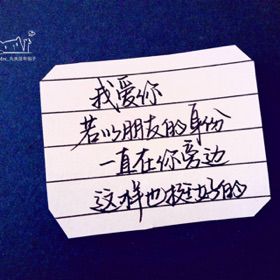 我爱你
若以朋友的身份
一直在你旁边
这样也挺好的